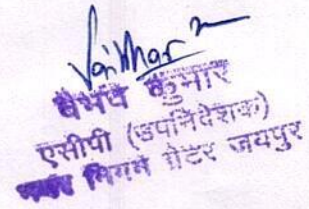 Vaibhav
वैभव कुमार
एसीपी (उपनिदेशक)
नगर निगम ग्रेटर जयपुर